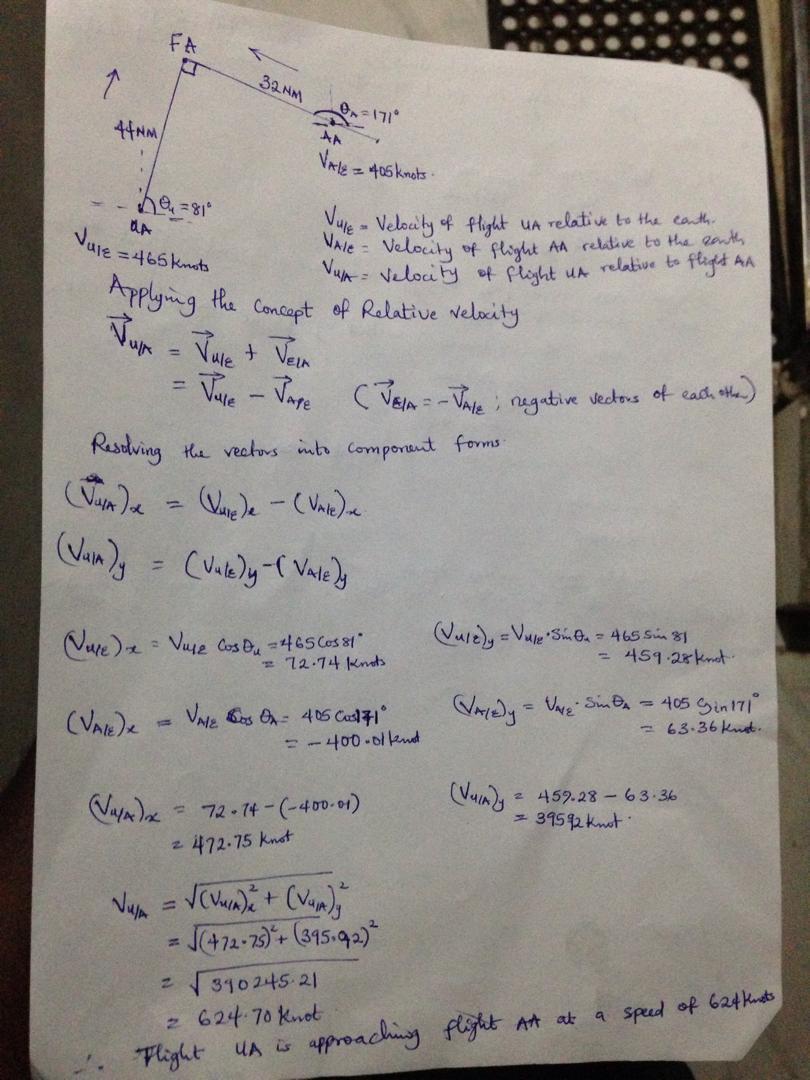 FA
32NM
θA = 171°
44NM
AA
VA/E = 405 knots.
θu = 81°
UA
VU/E = 465 knots
VU/E = Velocity of flight UA relative to the earth.
VA/E = Velocity of flight AA relative to the earth
VU/A = Velocity of flight UA relative to flight AA
Applying the concept of Relative velocity
V⃗U/A = V⃗U/E + V⃗E/A
= V⃗U/E − V⃗A/E ( V⃗E/A = −V⃗A/E ; negative vectors of each other)
Resolving the vectors into component forms.
(V⃗U/A)x = (VU/E)x − (VA/E)x
(VU/A)y = (VU/E)y − (VA/E)y
(VU/E)x = VU/E Cos θu = 465 Cos 81°
= 72.74 knots
(VU/E)y = VU/E · Sin θu = 465 Sin 81
= 459.28 knot.
(VA/E)x = VA/E Cos θA = 405 Cos 171°
= −400.01 knot
(VA/E)y = VA/E · Sin θA = 405 Sin 171°
= 63.36 knot.
(VU/A)x = 72.74 − (−400.01)
= 472.75 knot
(VU/A)y = 459.28 − 63.36
= 395.92 knot.
VU/A = √(VU/A)x² + (VU/A)y²
= √(472.75)² + (395.92)²
= √390245.21
= 624.70 knot
∴ Flight UA is approaching flight AA at a speed of 624 knots